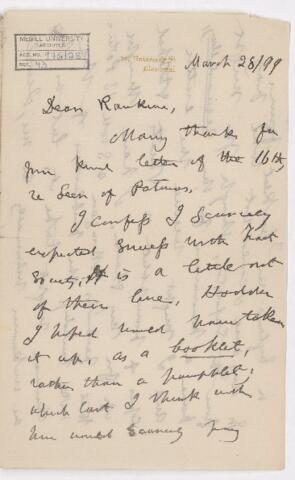 McGILL UNIVERSITY
ARCHIVES
ACC. NO.
REF. 43
University St.
Montreal.
March 28/99
Dear Rankine,
Many thanks for
your kind letter of the 16th,
re Seer of Patmos.
I confess I scarcely
expected success with Tract
Society, It is a little out
of their line, Hodder
I hoped would have taken
it up, as a booklet,
rather than a pamphlet;
which last I think with
him would scarcely pay